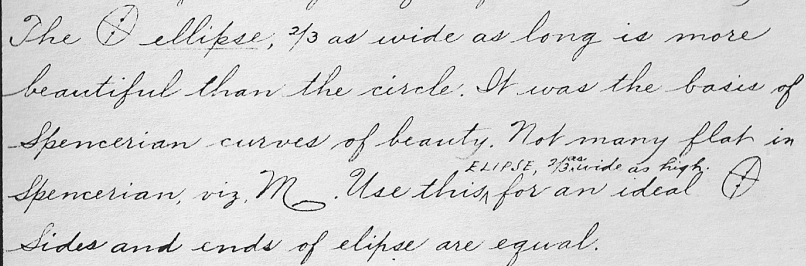 The ellipse, 2/3 as wide as long is more
beautiful than the circle. It was the basis of
Spencerian curves of beauty. Not many flat in
ELIPSE, 2/3 as wide as high.
Spencerian, viz, M . Use this ^ for an ideal
Sides and ends of elipse are equal.